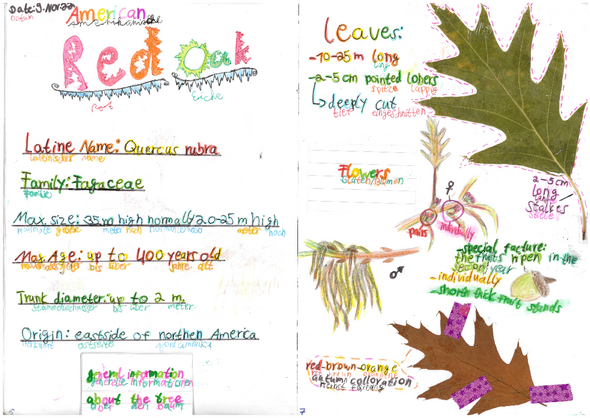 Date: 9. Nov. 22
Datum
American
amerikanische
Red Oak
Rot Eiche
Latine Name: Quercus rubra
lateinischer name
Family: Fagaceae
Familie
Max. size: 35 m high normally 20-25 m high
Max. Age: up to 400 years old
bis über jahre alt
Trunk diameter: up to 2 m.
bis über meter
Origin: eastside of northen America
ostseite
general information
generelle informationen
about the tree
über den baum
Leaves:
-10-25 m long
-2-5 cm pointed lobers
spitze
↳ deeply cut
tief eingeschnitten
Flowers
♀
pairs
individually
♂
2-5 cm
long
Stalkes
-special facture:
the fruits ripen in the
second year
-individually
-shorth thick fruit stands
red-brown-orange
autumn colloration
herbst
7